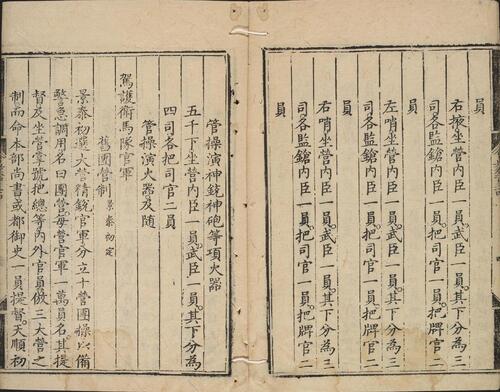 右掖坐營內臣一員武臣一員其下分為三
司各監鎗內臣一員把司官一員把牌官二
員
左哨坐營內臣一員武臣一員其下分為三
司各監鎗內臣一員把司官一員把牌官二
員
右哨坐營內臣一員武臣一員其下分為三
司各監鎗內臣一員把司官一員把牌官二
員
管操演神銃神砲等項火器
五千下坐營內臣一員武臣一員其下分為
四司各把司官二員
管操演火器及隨
駕護衛馬隊官軍
舊團營制景泰初定
景泰初選大營精銳官軍分立十營團操以備
警急調用名曰團營每營官軍一萬員名其提
督及坐營掌號把總等內外官員倣三大營之
制而命本部尚書或都御史一員提督天順初